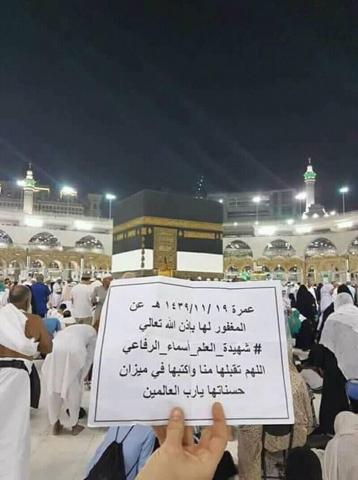 عمرة ١٤٣٩/١١/١٩ هـ عن
المغفور لها بإذن الله تعالي
# شهيدة_العلم_أسماء_الرفاعي
اللهم تقبلها منا واكتبها في ميزان
حسناتها يارب العالمين